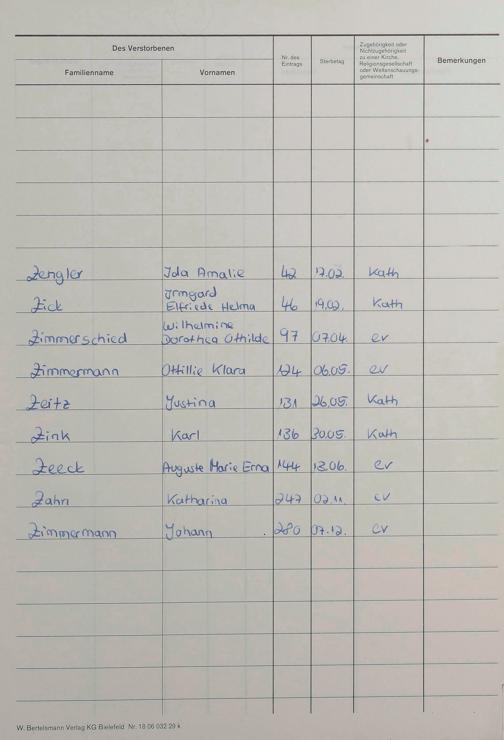 Des Verstorbenen
Familienname Vornamen Nr. des Eintrags Sterbetag Zugehörigkeit oder Nichtzugehörigkeit zu einer Kirche, Religionsgesellschaft oder Weltanschauungsgemeinschaft Bemerkungen
Zengler Ida Amalie 42 17.02. Kath
Zick Irmgard Elfriede Helma 46 19.02. Kath
Zimmerschied Wilhelmine Dorothea Othilde 97 07.04. ev
Zimmermann Ottillie Klara 124 06.05. ev
Zeitz Justina 131 26.05. Kath
Zink Karl 136 30.05. Kath
Zeeck Auguste Marie Erna 144 13.06. ev
Zahn Katharina 247 02.11. ev
Zimmermann Johann 280 07.12. ev
W. Bertelsmann Verlag KG Bielefeld Nr. 18 06 032 29 k